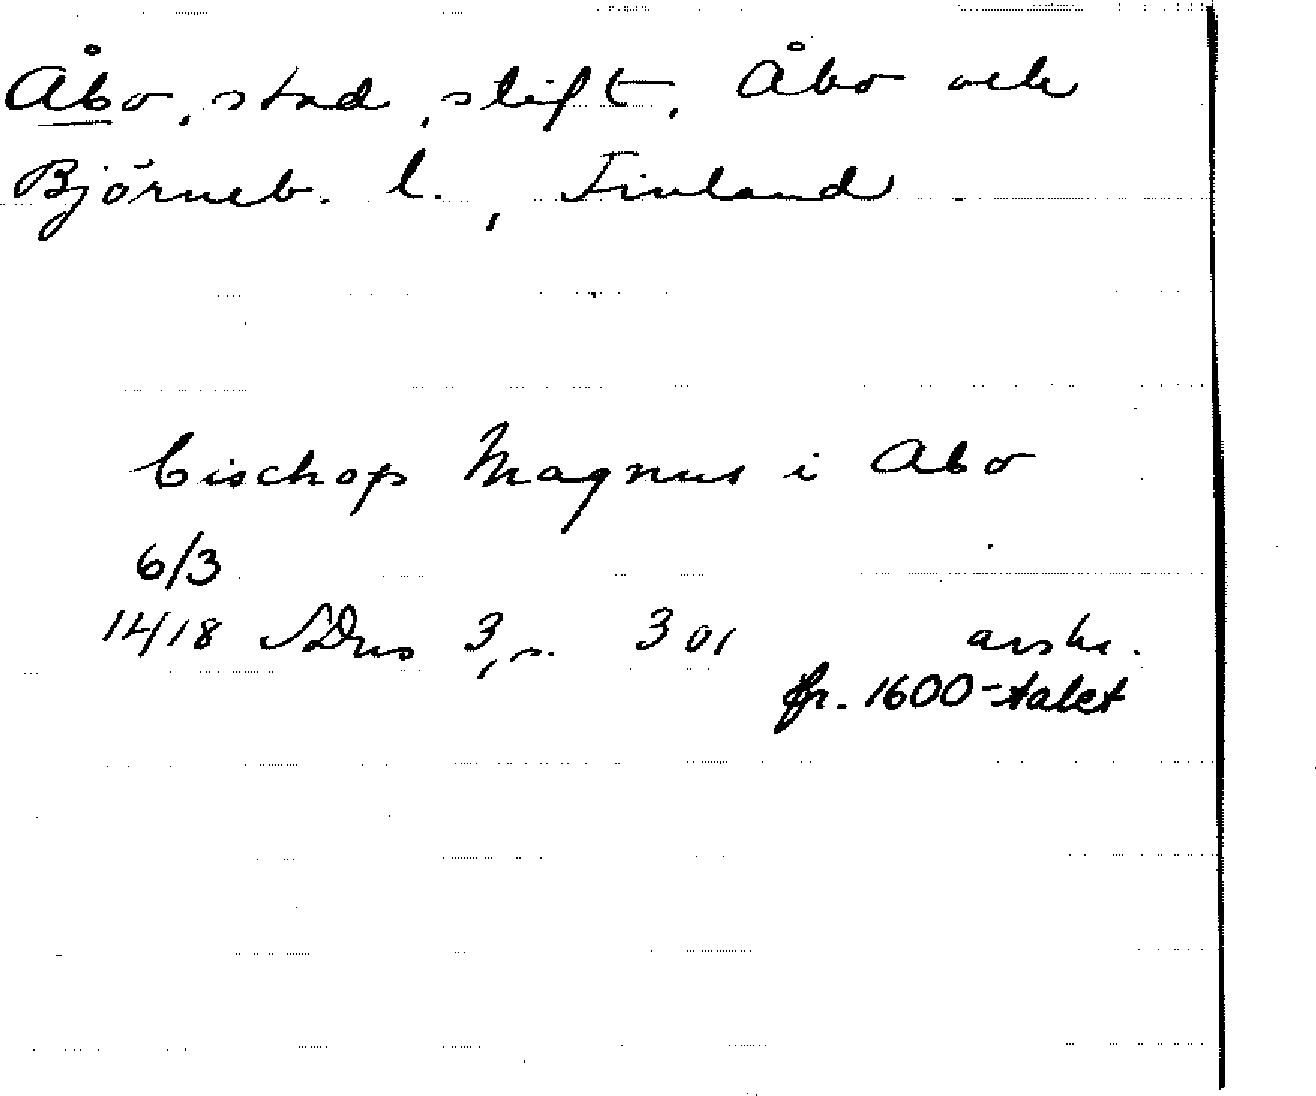 Åbo, stad, stift, Åbo och
Björneb. l., Finland
biscop Magnus i Abo
6/3
1418 SDns 3, s. 301 avskr.
fr. 1600-talet